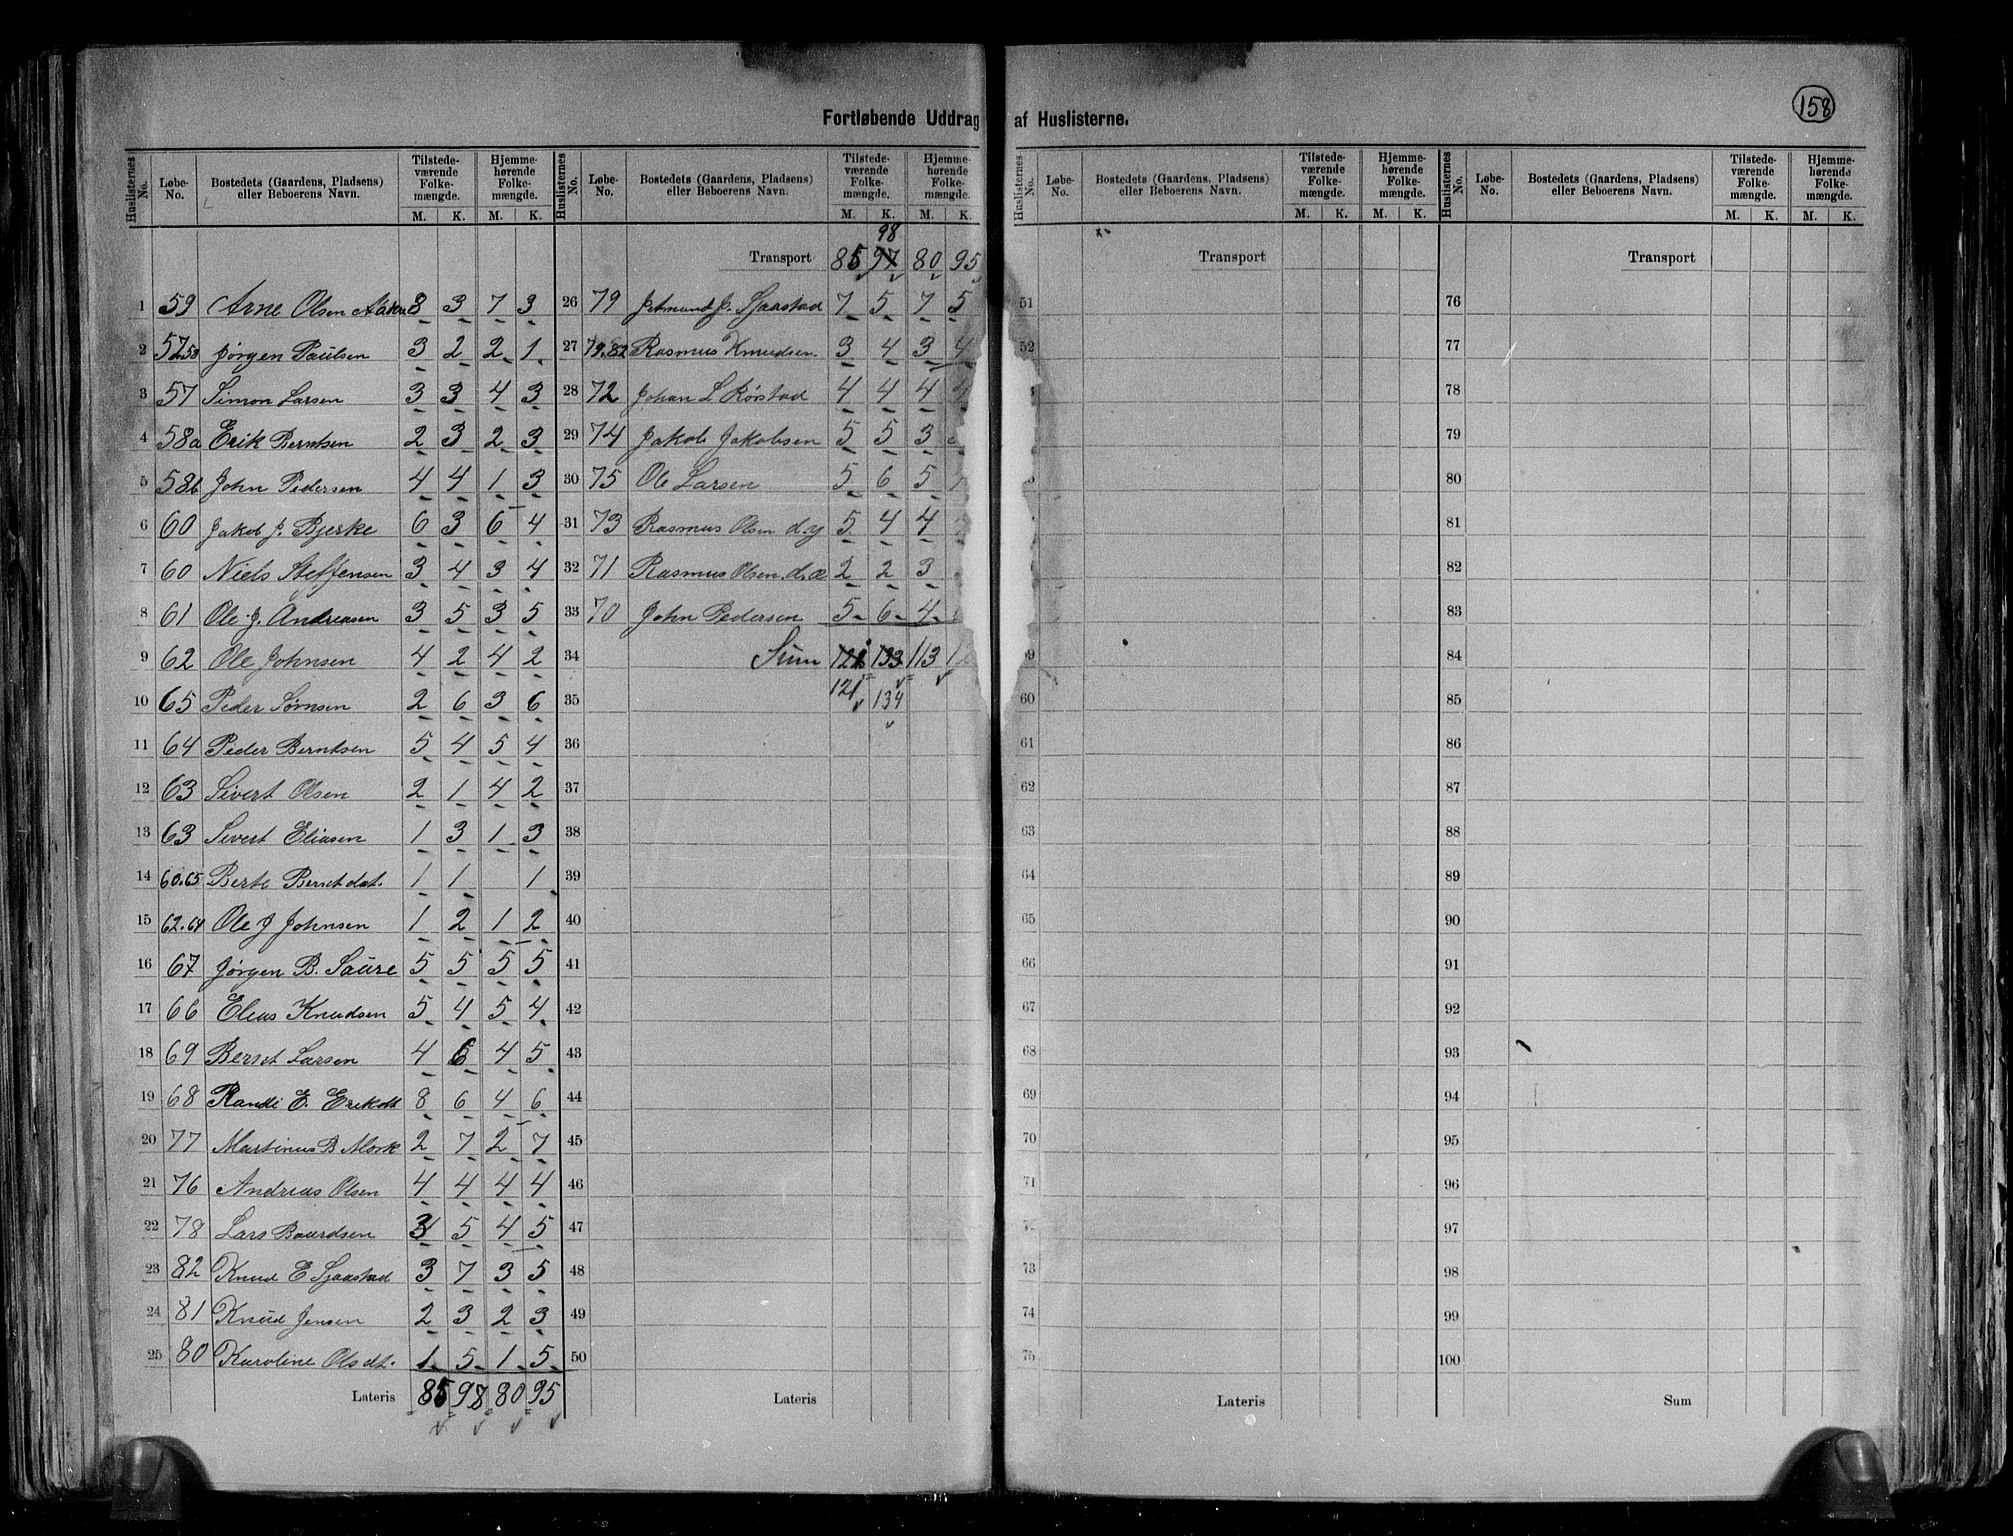 158
Fortløbende Uddrag af Huslisterne.
Huslisternes No. Løbe-No. Bostedets (Gaardens, Pladsens) eller Beboerens Navn. Tilstedeværende Folkemængde. M. K. Hjemmehørende Folkemængde. M. K.
1 59 Arne Olsen 8 3 7 3
2 57.58 Jørgen Paulsen 3 2 2 1
3 57 Simon Larsen 3 3 4 3
4 58a Erik Berntsen 2 3 2 3
5 58b John Pedersen 4 4 1 3
6 60 Jakob J. Bjerke 6 3 6 4
7 60 Niels Steffensen 3 4 3 4
8 61 Ole J. Andreasen 3 5 3 5
9 62 Ole Johnsen 4 2 4 2
10 65 Peder Sørnsen 2 6 3 6
11 64 Peder Berntsen 5 4 5 4
12 63 Sivert Olsen 2 1 4 2
13 63 Sivert Eliasen 1 3 1 3
14 60.65 Berte Berntdat. 1 1 1
15 62.64 Ole J Johnsen 1 2 1 2
16 67 Jørgen B. Saure 5 5 5 5
17 66 Elias Knudsen 5 4 5 4
18 69 Bernt Larsen 4 6 4 5
19 68 Randi E. Eriksdt 8 6 4 6
20 77 Martinus B Mork 2 7 2 7
21 76 Andreas Olsen 4 4 4 4
22 78 Lars Baardsen 3 5 4 5
23 82 Knud E Sjaastad 3 7 3 5
24 81 Knud Jensen 2 3 2 3
25 80 Karoline Olsdt. 1 5 1 5
Lateris 85 98 80 95
Huslisternes No. Løbe-No. Bostedets (Gaardens, Pladsens) eller Beboerens Navn. Tilstedeværende Folkemængde. M. K. Hjemmehørende Folkemængde. M. K.
98
Transport 85 97 80 95
26 79 J. Sjaastad 7 5 7 5
27 79.82 Rasmus Knudsen 3 4 3 4
28 72 Johan L Rørstad 4 4 4
29 74 Jakob Jakobsen 5 5 3
30 75 Ole Larsen 5 6 5
31 73 Rasmus Olsen d.y 5 4 4
32 71 Rasmus Olsen d.æ 2 2 3
33 70 John Pedersen 5 6 4
34 Sum 121 133 113
35 121 134
36
37
38
39
40
41
42
43
44
45
46
47
48
49
50
Lateris
Huslisternes No. Løbe-No. Bostedets (Gaardens, Pladsens) eller Beboerens Navn. Tilstedeværende Folkemængde. M. K. Hjemmehørende Folkemængde. M. K.
Transport
51
52
60
61
62
63
64
65
66
67
68
69
70
71
73
74
75
Lateris
Huslisternes No. Løbe-No. Bostedets (Gaardens, Pladsens) eller Beboerens Navn. Tilstedeværende Folkemængde. M. K. Hjemmehørende Folkemængde. M. K.
Transport
76
77
78
79
80
81
82
83
84
85
86
87
88
89
90
91
92
93
94
95
96
97
98
99
100
Sum